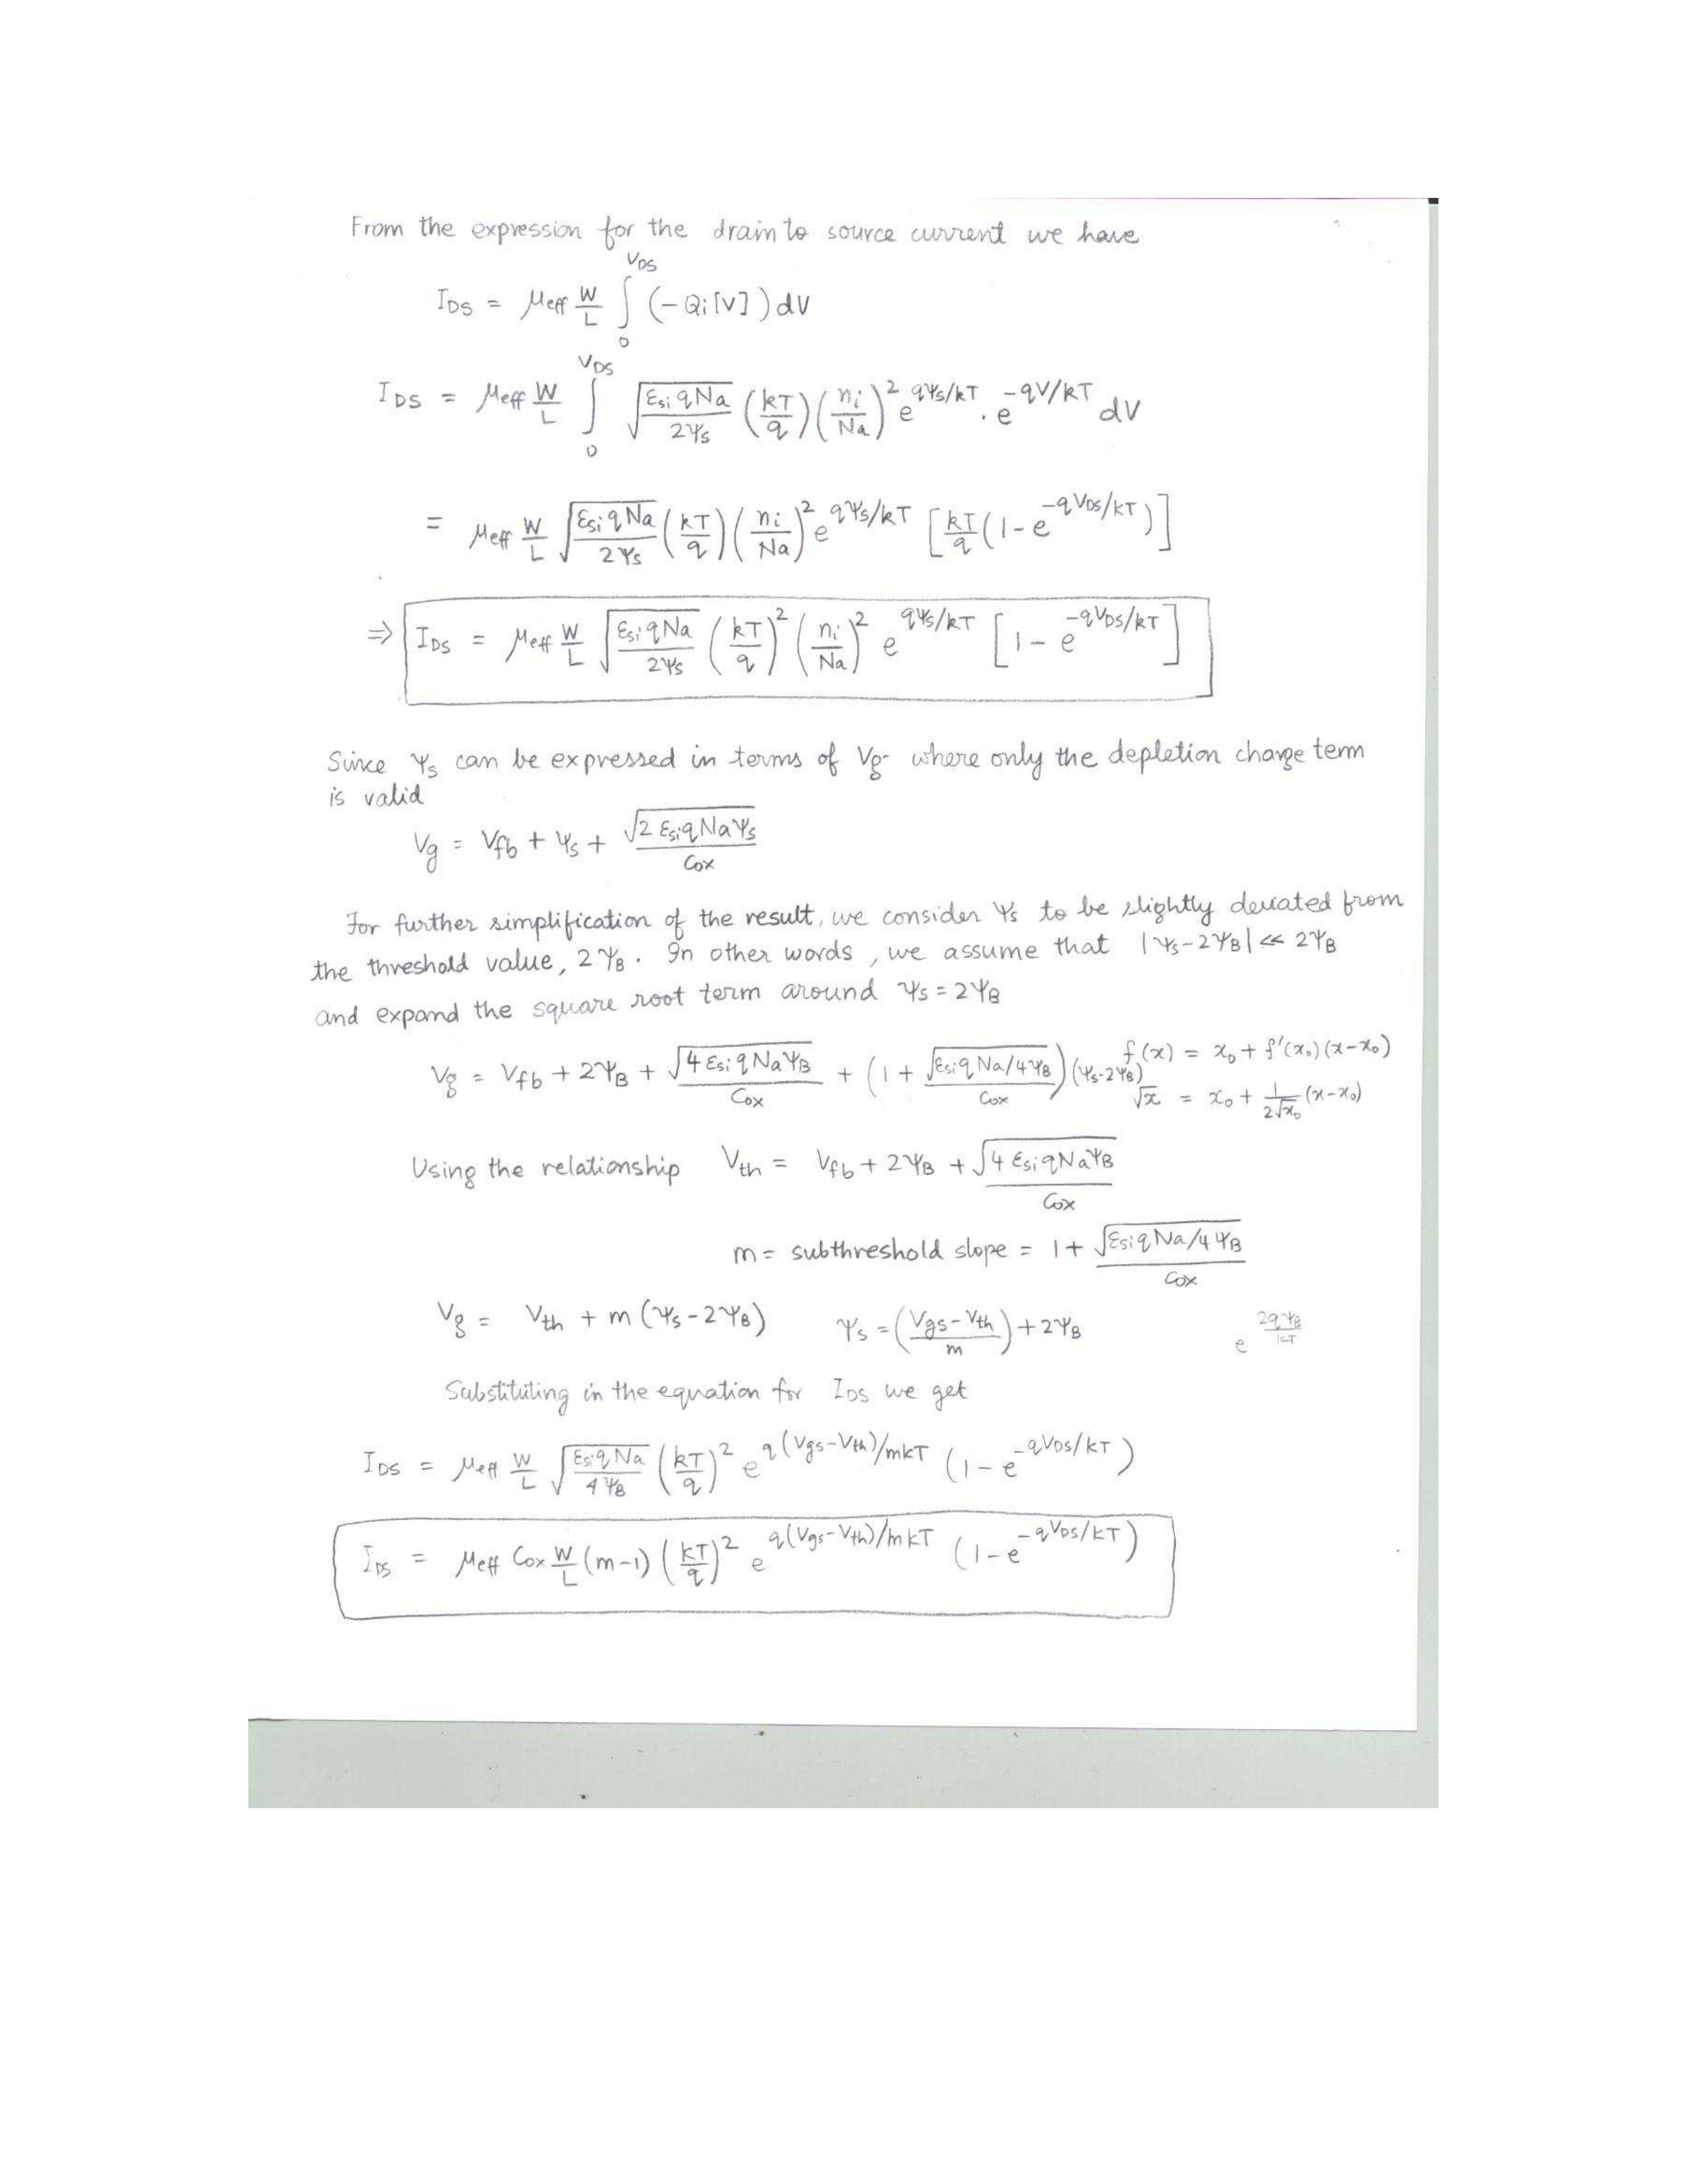 From the expression for the drain to source current we have
I_DS = μeff W/L ∫_0^{V_DS} (-Qi[V]) dV
I_DS = μeff W/L ∫_0^{V_DS} √(εsi q Na / 2ψs) (kT/q) (ni/Na)^2 e^{qψs/kT} . e^{-qV/kT} dV
= μeff W/L √(εsi q Na / 2ψs) (kT/q) (ni/Na)^2 e^{qψs/kT} [kT/q (1 - e^{-qV_DS/kT})]
⇒ I_DS = μeff W/L √(εsi q Na / 2ψs) (kT/q)^2 (ni/Na)^2 e^{qψs/kT} [1 - e^{-qV_DS/kT}]
Since ψs can be expressed in terms of Vg where only the depletion charge term
is valid
Vg = Vfb + ψs + √(2 εsi q Na ψs) / Cox
For further simplification of the result, we consider ψs to be slightly deviated from
the threshold value, 2ψB. In other words, we assume that |ψs - 2ψB| << 2ψB
and expand the square root term around ψs = 2ψB
Vg = Vfb + 2ψB + √(4 εsi q Na ψB) / Cox + (1 + √(εsi q Na / 4ψB) / Cox) (ψs - 2ψB)
f(x) = x0 + f'(x0)(x - x0)
√x = x0 + 1/(2√x0) (x - x0)
Using the relationship Vth = Vfb + 2ψB + √(4 εsi q Na ψB) / Cox
m = subthreshold slope = 1 + √(εsi q Na / 4ψB) / Cox
Vg = Vth + m (ψs - 2ψB) ψs = ((Vgs - Vth) / m) + 2ψB e^{2qψB/kT}
Substituting in the equation for I_DS we get
I_DS = μeff W/L √(εsi q Na / 4ψB) (kT/q)^2 e^{q(Vgs - Vth)/mkT} (1 - e^{-qV_DS/kT})
I_DS = μeff Cox W/L (m-1) (kT/q)^2 e^{q(Vgs - Vth)/mkT} (1 - e^{-qV_DS/kT})